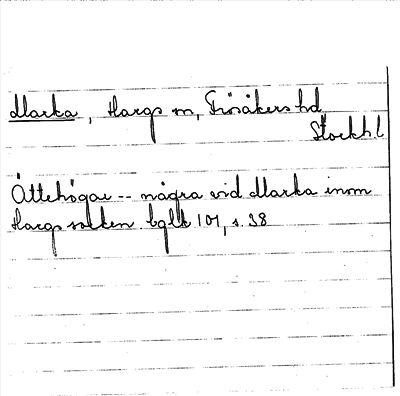 Marka, Hargs sn, Frösåkers hd
Stockh.l
Ättehögar -- några vid Marka inom
Hargs socken. 101, s. 38